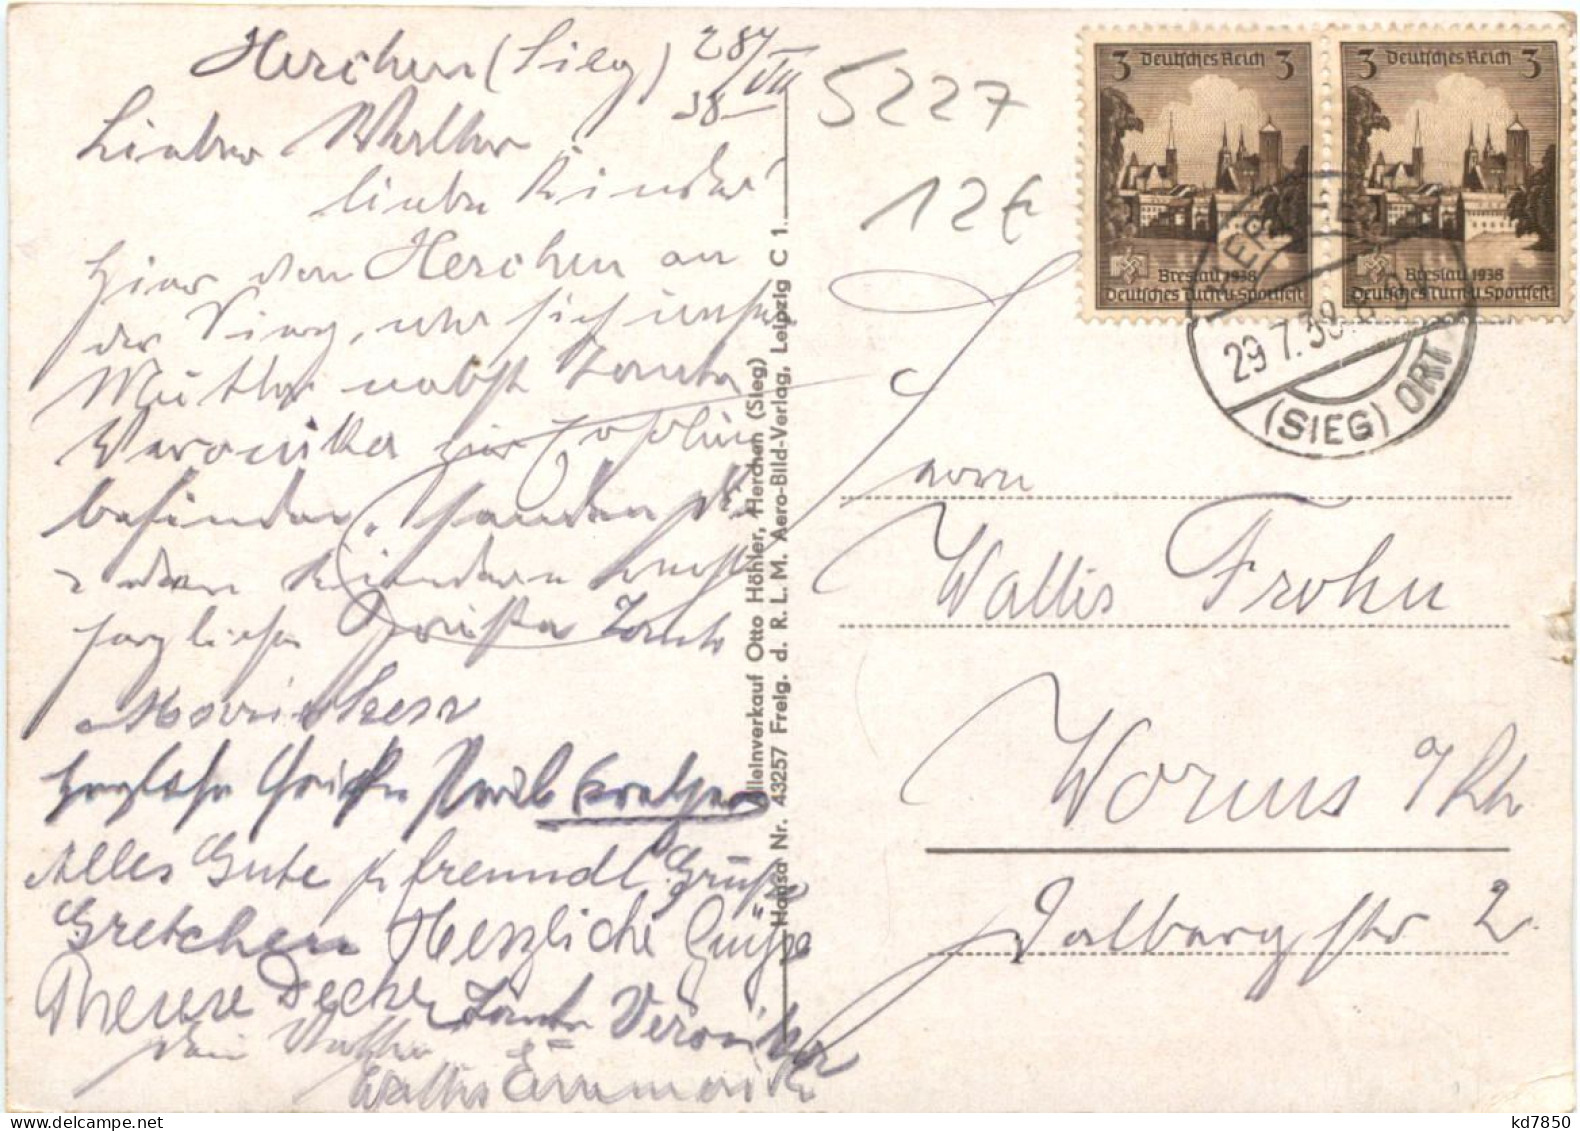 Herchen (Sieg) 28/VII
38
Lieber Walther
liebe Kinder!
Hier von Herchen an
der Sieg, wo sich unsere
Mutter nebst Tante
Veronika zur Erholung
befinden, senden Dir
u. den Kindern recht
herzliche Grüße Tante
Herzliche Grüße
Alles Gute u. freundl. Grüße
Gretchen Herzliche Grüße
Therese Decker Tante Veronika
Dein Vetter
5227
12€
3 Deutsches Reich 3
Breslau 1938
Deutsches Turn u. Sportfest
3 Deutsches Reich 3
Breslau 1938
Deutsches Turn u. Sportfest
HERCHEN
29.7.38
(SIEG) ORT
Herrn
Wallis Frohn
Worms a/Rh
Dalbergstr 2
Alleinverkauf Otto Höhler, Herchen (Sieg)
Hansa Nr. 43257 Freig. d. R. L. M. Aero-Bild-Verlag, Leipzig C 1
kd7850